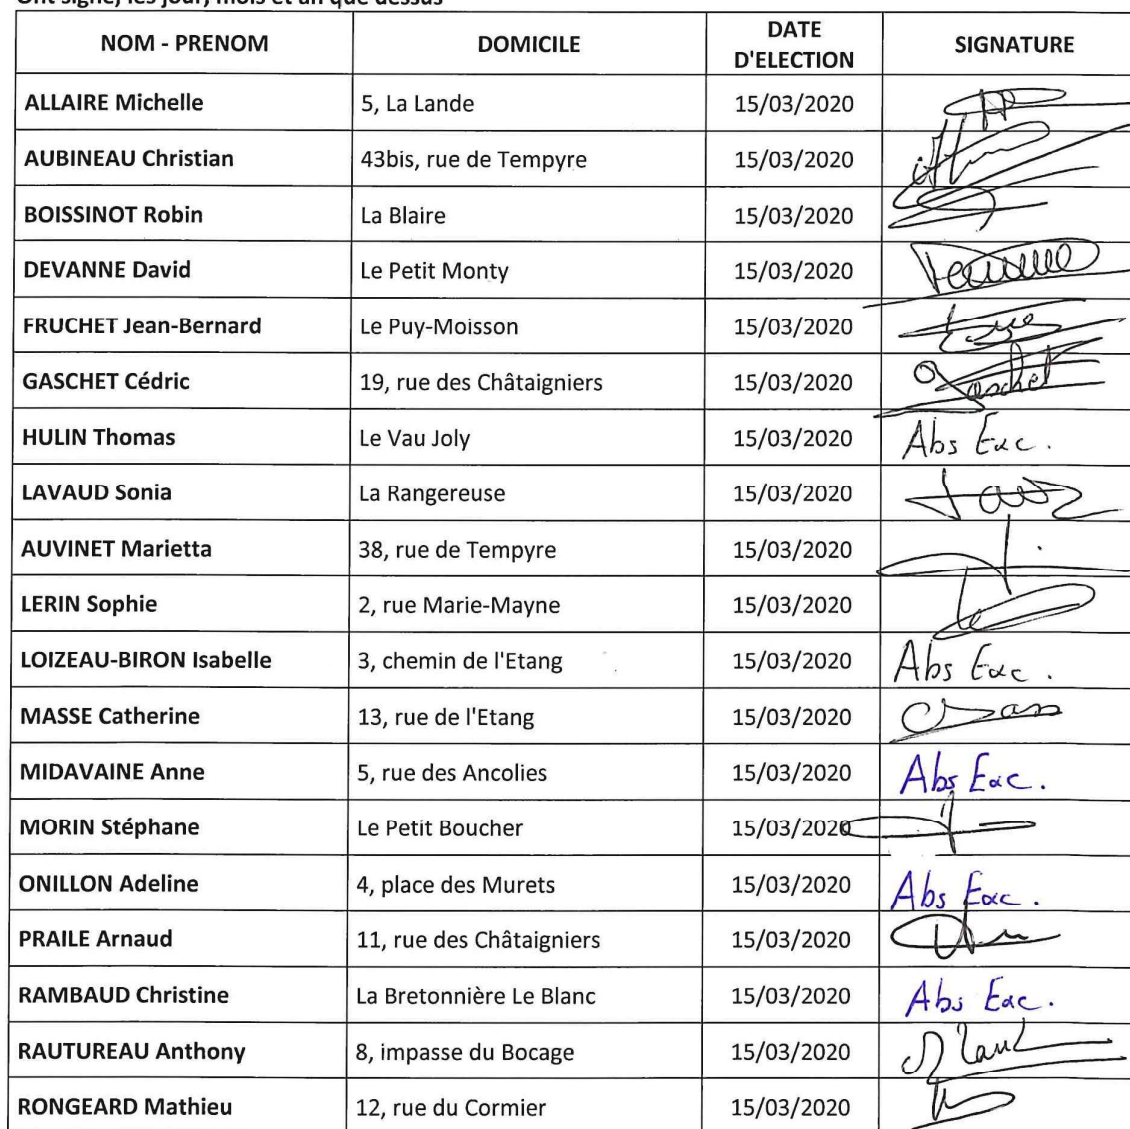 Ont signé, les jour, mois et an que dessus
NOM - PRENOM DOMICILE DATE D'ELECTION SIGNATURE
ALLAIRE Michelle 5, La Lande 15/03/2020
AUBINEAU Christian 43bis, rue de Tempyre 15/03/2020
BOISSINOT Robin La Blaire 15/03/2020
DEVANNE David Le Petit Monty 15/03/2020
FRUCHET Jean-Bernard Le Puy-Moisson 15/03/2020
GASCHET Cédric 19, rue des Châtaigniers 15/03/2020 Gaschet
HULIN Thomas Le Vau Joly 15/03/2020 Abs Exc.
LAVAUD Sonia La Rangereuse 15/03/2020
AUVINET Marietta 38, rue de Tempyre 15/03/2020
LERIN Sophie 2, rue Marie-Mayne 15/03/2020
LOIZEAU-BIRON Isabelle 3, chemin de l'Etang 15/03/2020 Abs Exc.
MASSE Catherine 13, rue de l'Etang 15/03/2020
MIDAVAINE Anne 5, rue des Ancolies 15/03/2020 Abs Exc.
MORIN Stéphane Le Petit Boucher 15/03/2020
ONILLON Adeline 4, place des Murets 15/03/2020 Abs Exc.
PRAILE Arnaud 11, rue des Châtaigniers 15/03/2020
RAMBAUD Christine La Bretonnière Le Blanc 15/03/2020 Abs Exc.
RAUTUREAU Anthony 8, impasse du Bocage 15/03/2020
RONGEARD Mathieu 12, rue du Cormier 15/03/2020